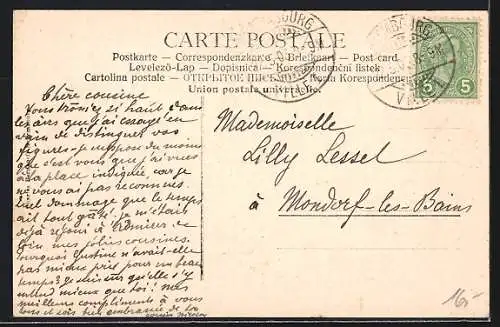 CARTE POSTALE
Postkarte — Correspondenzkarte — Briefkaart — Post-card
Levelező-Lap — Dopisnica — Korespondenční lístek
Cartolina postale — ОТКРЫТОЕ ПИСЬМО — Korespondenc
Union postale universelle.
5 5
VILLE
Chère cousine
Vous trôniez si haut dans
les airs que j'ai essayé en
vain de distinguer vos
figures. Je suppose du moins
que c'est vous que j'ai vues
à la place indiquée, car je
ne vous ai pas reconnues.
Quel dommage que le temps
ait tout gâté. Je m'étais
déjà réjoui à de
loin mes jolies cousines.
Pourquoi Justine n'avait-elle
pas mieux prié pour un beau
temps? Je suis sûr qu'elle s'y
entend mieux que toi! Mes
meilleurs compliments à vous
tous et sois bien embrassée de ton
cousin
Mademoiselle
Lilly Lessel
à Mondorf-les-Bains
16.-